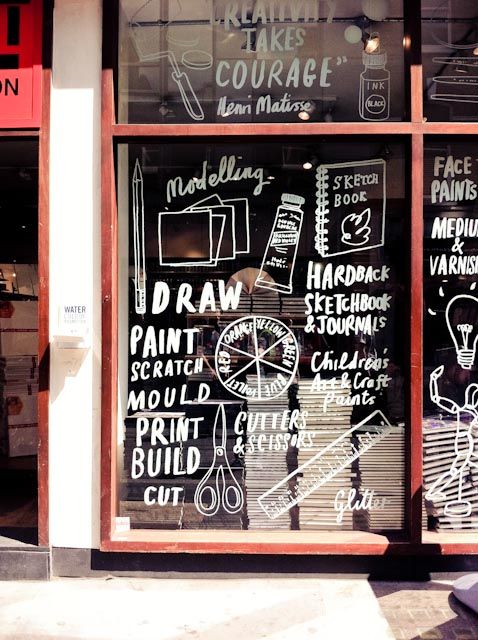 CREATIVITY
TAKES
COURAGE"
Henri Matisse
INK
BLACK
ON
Modelling
SKETCH
BOOK
DRAW
HARDBACK
SKETCHBOOK
& JOURNALS
PAINT
SCRATCH
MOULD
PRINT
BUILD
CUT
RED ORANGE YELLOW GREEN BLUE VIOLET
Children's
Art & Craft
Paints
CUTTERS
& SCISSORS
Glitter
FACE
PAINTS
MEDIU
&
VARNIS
WATER